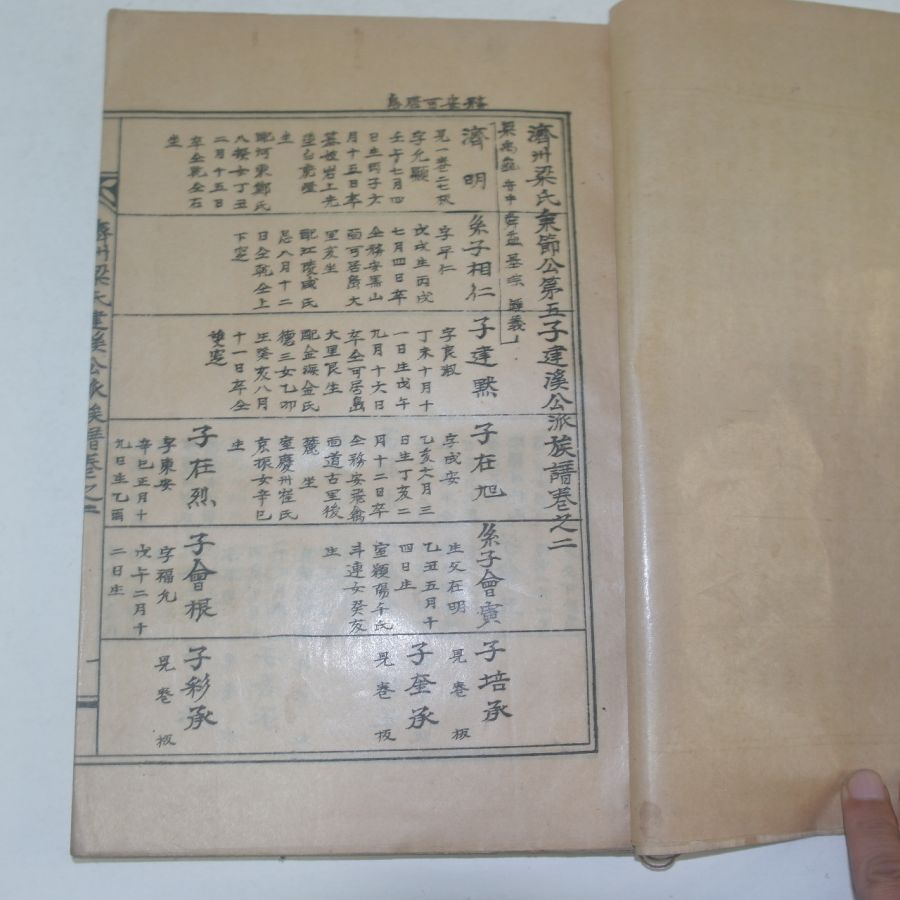 務安可居島
濟州梁氏秉節公第五子建溪公派族譜卷之二
濟明
見一卷二七板
字允顯
壬午七月四
日生丙子六
月十五日卒
墓岩上先
生
配河東鄭氏
八癸女丁丑
二月十五日
卒仝乾仝石
坐
系子相仁
字平仁
戊戌生丙戌
七月四日卒
仝務安黑山
面可居島大
里亥坐
配江陵咸氏
忌八月十二
日仝乾仝上
下窆
子達默
字良淑
丁未十月十
一日生戊午
九月十六日
卒仝可居島
大里艮坐
配金海金氏
德三女乙卯
生癸亥八月
十一日卒仝
雙窆
子在旭
字成安
乙亥六月三
日生丁亥二
月十二日卒
仝務安飛禽
面道古里後
麓坐
室慶州崔氏
京振女辛巳
生
子在烈
字東安
辛巳正月十
九日生乙酉
系子會寅
生父在明
乙丑五月十
四日生
室潁陽千氏
斗連女癸亥
生
子會根
字福允
戊午二月十
二日生
子培承
見卷 板
子奎承
見卷 板
子彩承
見卷 板
濟州梁氏建溪公派族譜卷之二
一